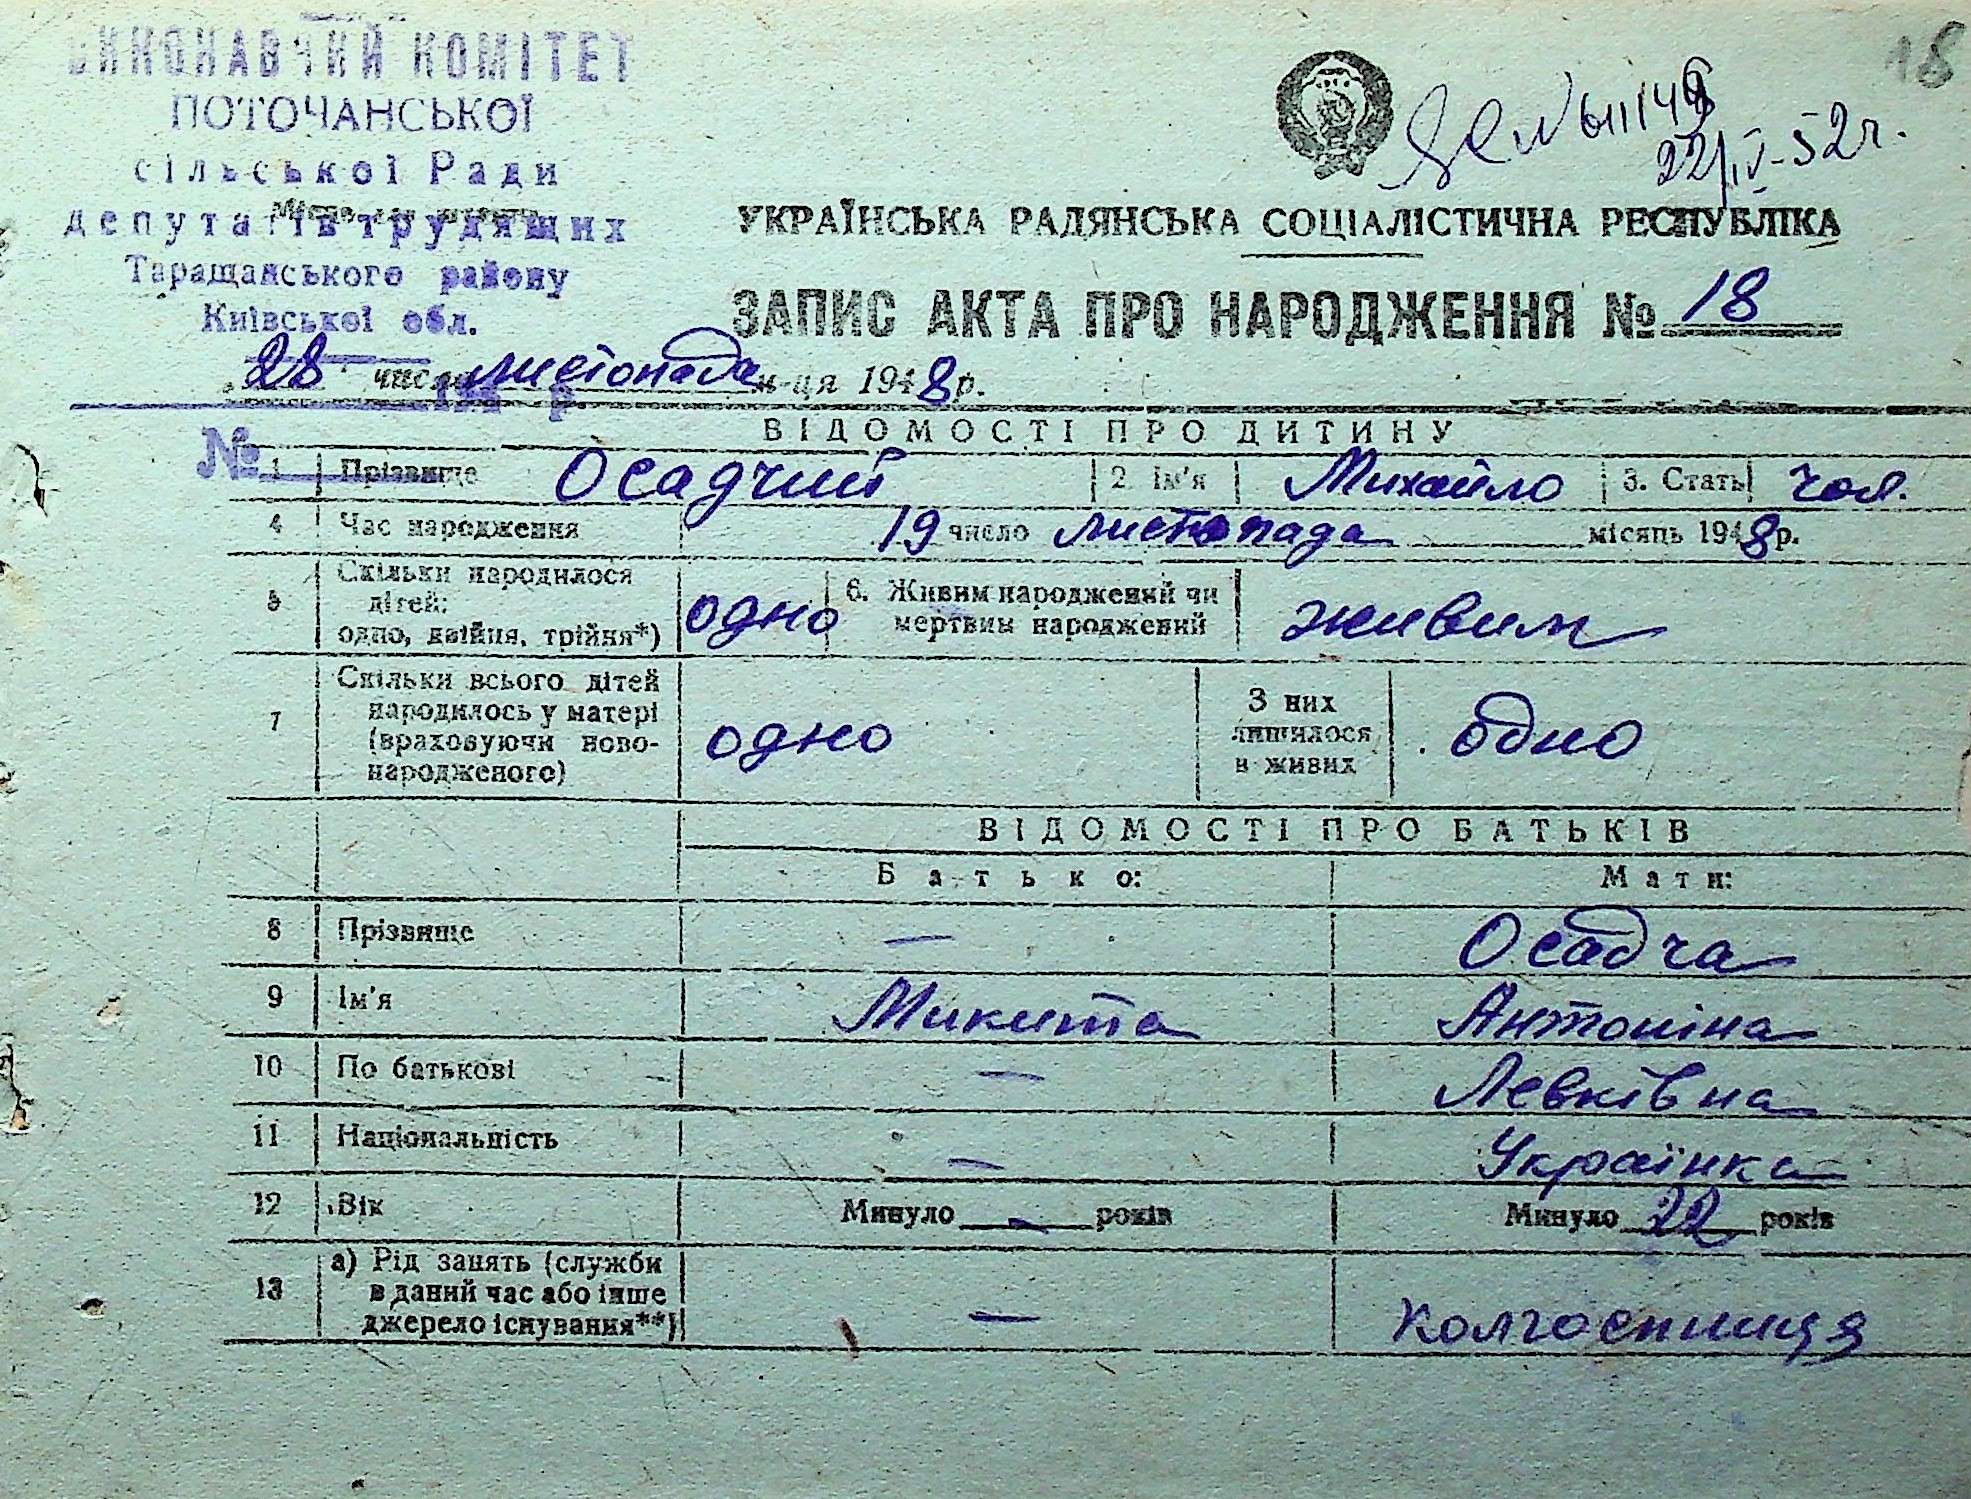 18
ВИКОНАВЧИЙ КОМІТЕТ
ПОТОЧАНСЬКОЇ
сільської Ради
депутатів трудящих
Таращанського району
Київської обл.
22/IV-52 г.
УКРАЇНСЬКА РАДЯНСЬКА СОЦІАЛІСТИЧНА РЕСПУБЛІКА
ЗАПИС АКТА ПРО НАРОДЖЕННЯ № 18
28 число листопада м-ця 1948 р.
№
ВІДОМОСТІ ПРО ДИТИНУ
1 Прізвище Осадчий 2. Ім'я Михайло 3. Стать чол.
4 Час народження 19 число листопада місяць 1948 р.
5 Скільки народилося дітей: одно, двійня, трійня*) одно 6. Живим народжений чи мертвим народжений живим
7 Скільки всього дітей народилось у матері (враховуючи новонародженого) одно З них лишилося в живих одно
ВІДОМОСТІ ПРО БАТЬКІВ
Батько: Мати:
8 Прізвище — Осадча
9 Ім'я Микита Антоніна
10 По батькові — Левківна
11 Національність — Українка
12 Вік Минуло — років Минуло 22 років
13 а) Рід занять (служби в даний час або інше джерело існування**) — колгоспниця